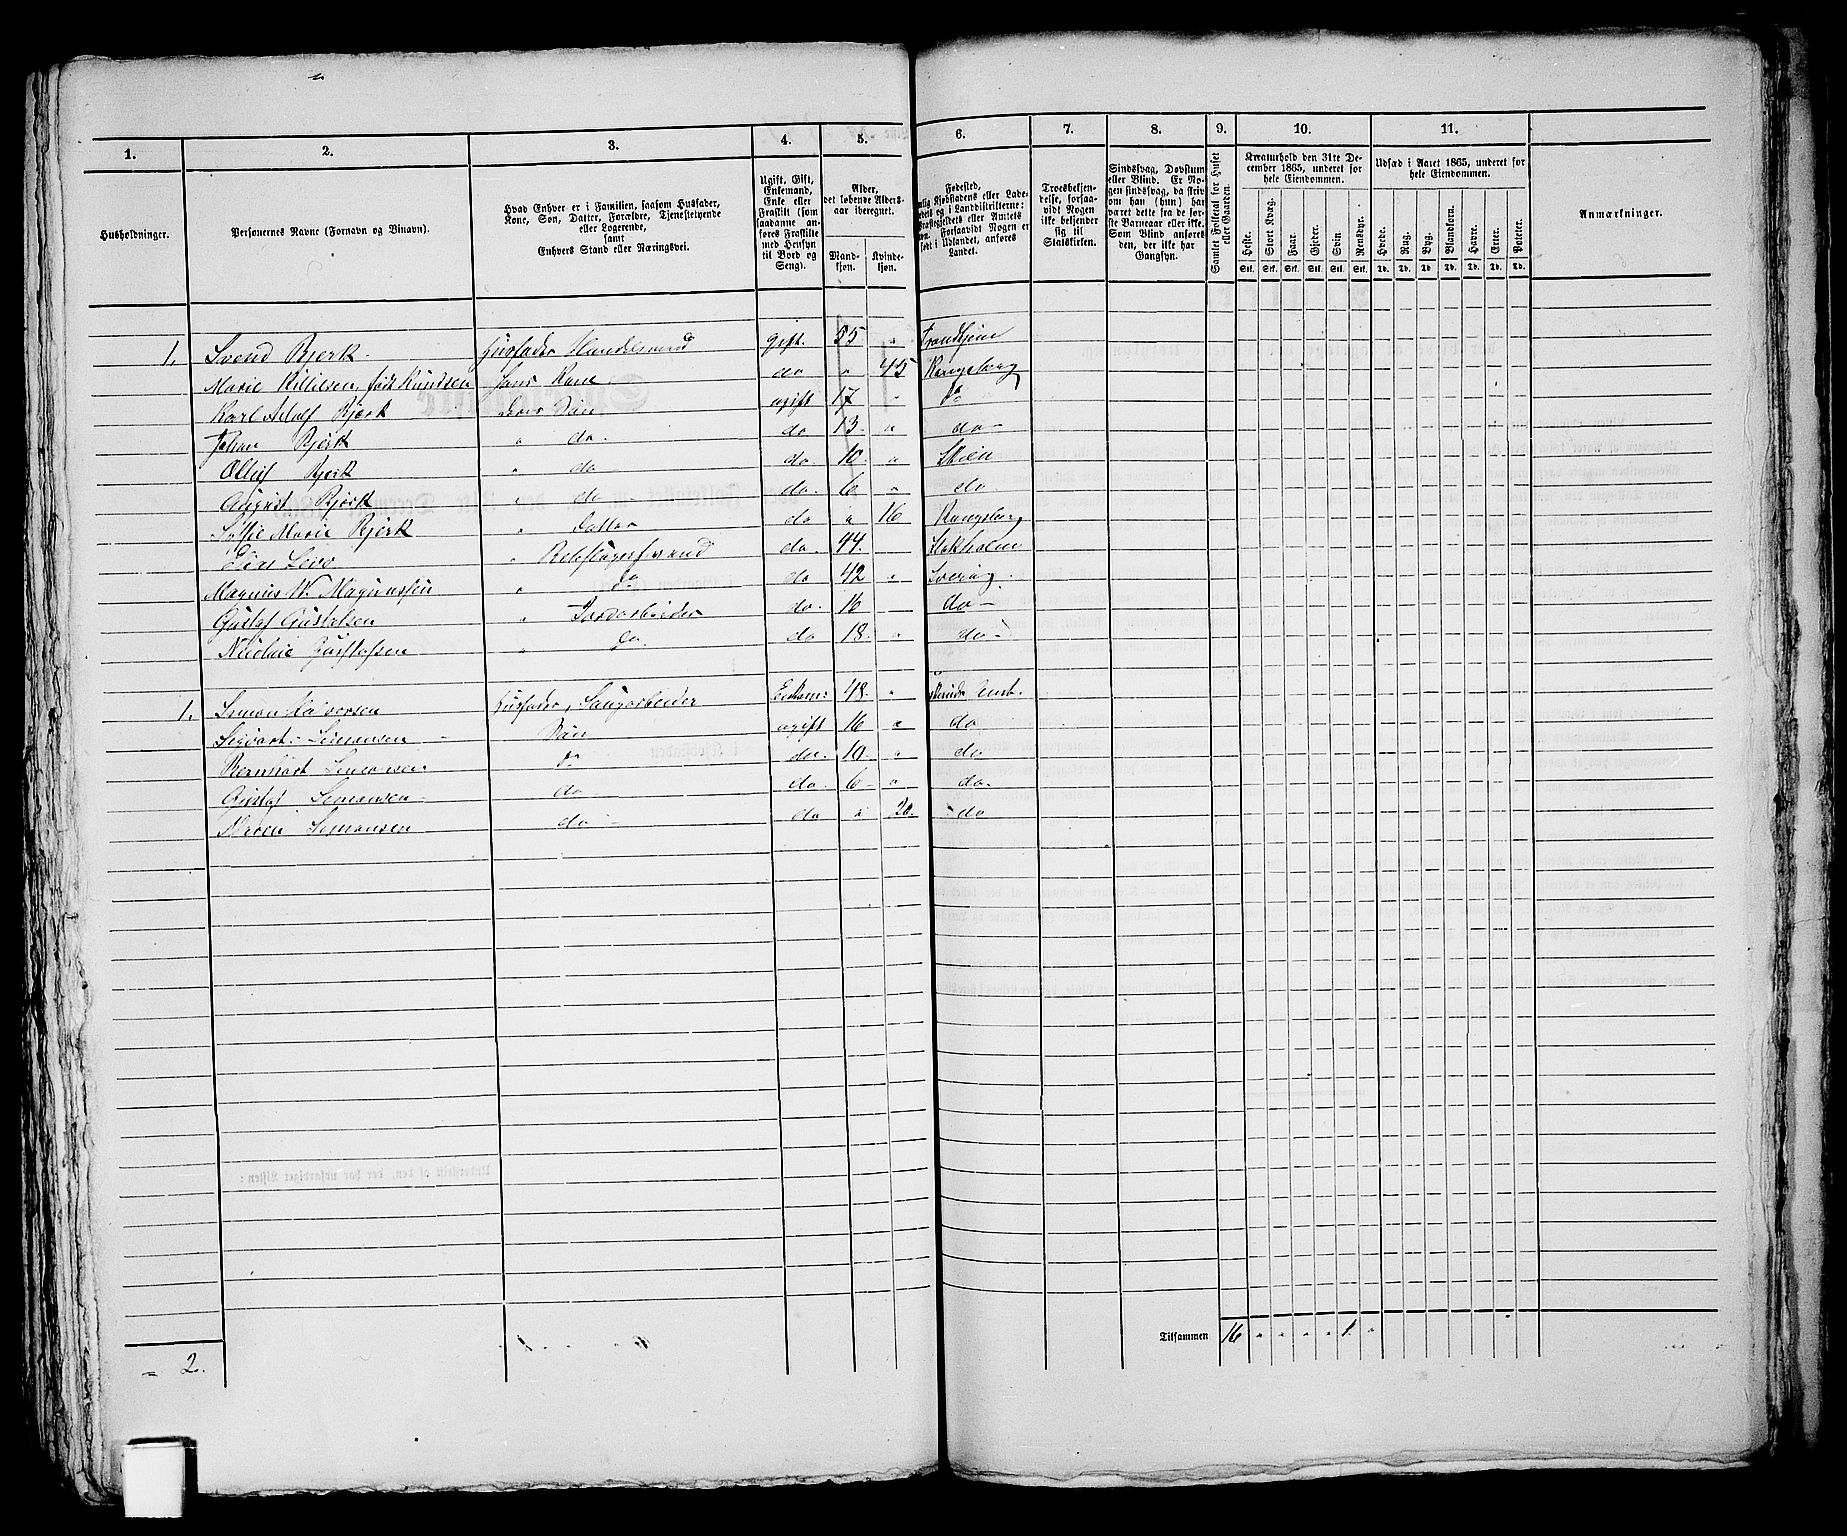 1. 2. 3. 4. 5. 6. 7. 8. 9. 10. 11.
Husholdninger.
Personernes Navne (Fornavn og Binavn).
Hvad Enhver er i Familien, saasom Husfader,
Kone, Søn, Datter, Forældre, Tjenestetyende
eller Logerende,
samt
Enhvers Stand eller Næringsvei.
Ugift, Gift,
Enkemand,
Enke eller
Fraskilt (som
saadanne an-
føres Fraskilte
med Hensyn
til Bord og
Seng).
Alder,
det løbende Alders-
aar iberegnet.
Mand-
kjøn.
Kvinde-
kjøn.
Fødested,
Kjøbstadens eller Lade-
stedets og i Landdistrikterne:
Præstegjeldets eller Amtets
Forsaavidt Nogen er
født i Udlandet, anføres
Landet.
Troesbekjen-
delse, forsaa-
vidt Nogen
ikke bekjender
sig til
Statskirken.
Sindssvag, Døvstum
eller Blind. Er No-
gen sindssvag, da skriv
om han (hun) har
været dette fra de før-
ste Barneaar eller ikke.
Som Blind anføres
den, der ikke har
Gangsyn.
Samlet Folketal for Huset
eller Gaarden.
Kreaturhold den 31te De-
cember 1865, underet for
hele Eiendommen.
Heste. Stort Kvæg. Faar. Gjeder. Svin. Rensdyr.
Stk. Stk. Stk. Stk. Stk. Stk.
Udsæd i Aaret 1865, underet for
hele Eiendommen.
Hvede. Rug. Byg. Blandkorn. Havre. Erter. Poteter.
Td. Td. Td. Td. Td. Td. Td.
Anmærkninger.
1. Svend Bjerk. Husfader Handelsmand gift. 55 " Trondhjem
Marie Killilsen, født Knudsen hans Kone do " 45 Kongsberg
Karl Adolf Bjerk deres Søn ugift 17 " do
Johan Bjerk " do. do 13. " do-
Olluf Bjerk " do do. 10. " Skien
August Bjerk " do- do. 6 " do
Marie Bjerk " Datter do " 16 Kongsberg
" do. 44. Stokholm
Magnus W. Magnussen " do do 42 " Sverig.
Gustaf Gustafsen " Jordarbeider do. 16 do-
Gustafsen " do. do 18. " do-
1. Simon Halvorsen Husfader, Enkem: 48. " Amt.
Sigvart Simonsen Søn ugift 16 " do
Bernhart Simonsen do do. 10. " do
Gustaf Simonsen do- do 6 " do.
Simonsen do - do " 20. do
= 2.
Tilsammen 16 " " " " 1. "